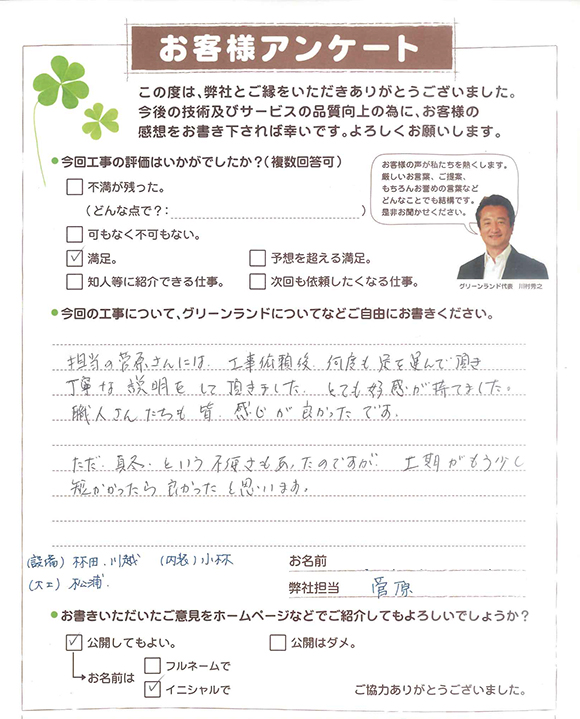 お客様アンケート
この度は、弊社とご縁をいただきありがとうございました。
今後の技術及びサービスの品質向上の為に、お客様の
感想をお書き下されば幸いです。よろしくお願いします。
●今回工事の評価はいかがでしたか？（複数回答可）
お客様の声が私たちを熱くします。
厳しいお言葉、ご提案、
もちろんお誉めの言葉など
どんなことでも結構です。
是非お聞かせください。
グリーンランド代表 川村秀之
□ 不満が残った。
（どんな点で？：　）
□ 可もなく不可もない。
☑ 満足。 □ 予想を超える満足。
□ 知人等に紹介できる仕事。 □ 次回も依頼したくなる仕事。
●今回の工事について、グリーンランドについてなどご自由にお書きください。
担当の菅原さんには、工事依頼後、何度も足を運んで頂き
丁寧な説明をして頂きました。とても好感が持てました。
職人さんたちも皆、感じが良かったです。
ただ、真冬、という不便さもあったのですが、工期がもう少し
短かかったら良かったと思います。
(設備) 林田、川越 (内装) 小林
(大工) 松浦、
お名前
弊社担当 菅原
●お書きいただいたご意見をホームページなどでご紹介してもよろしいでしょうか？
☑ 公開してもよい。 □ 公開はダメ。
お名前は □ フルネームで
☑ イニシャルで
ご協力ありがとうございました。